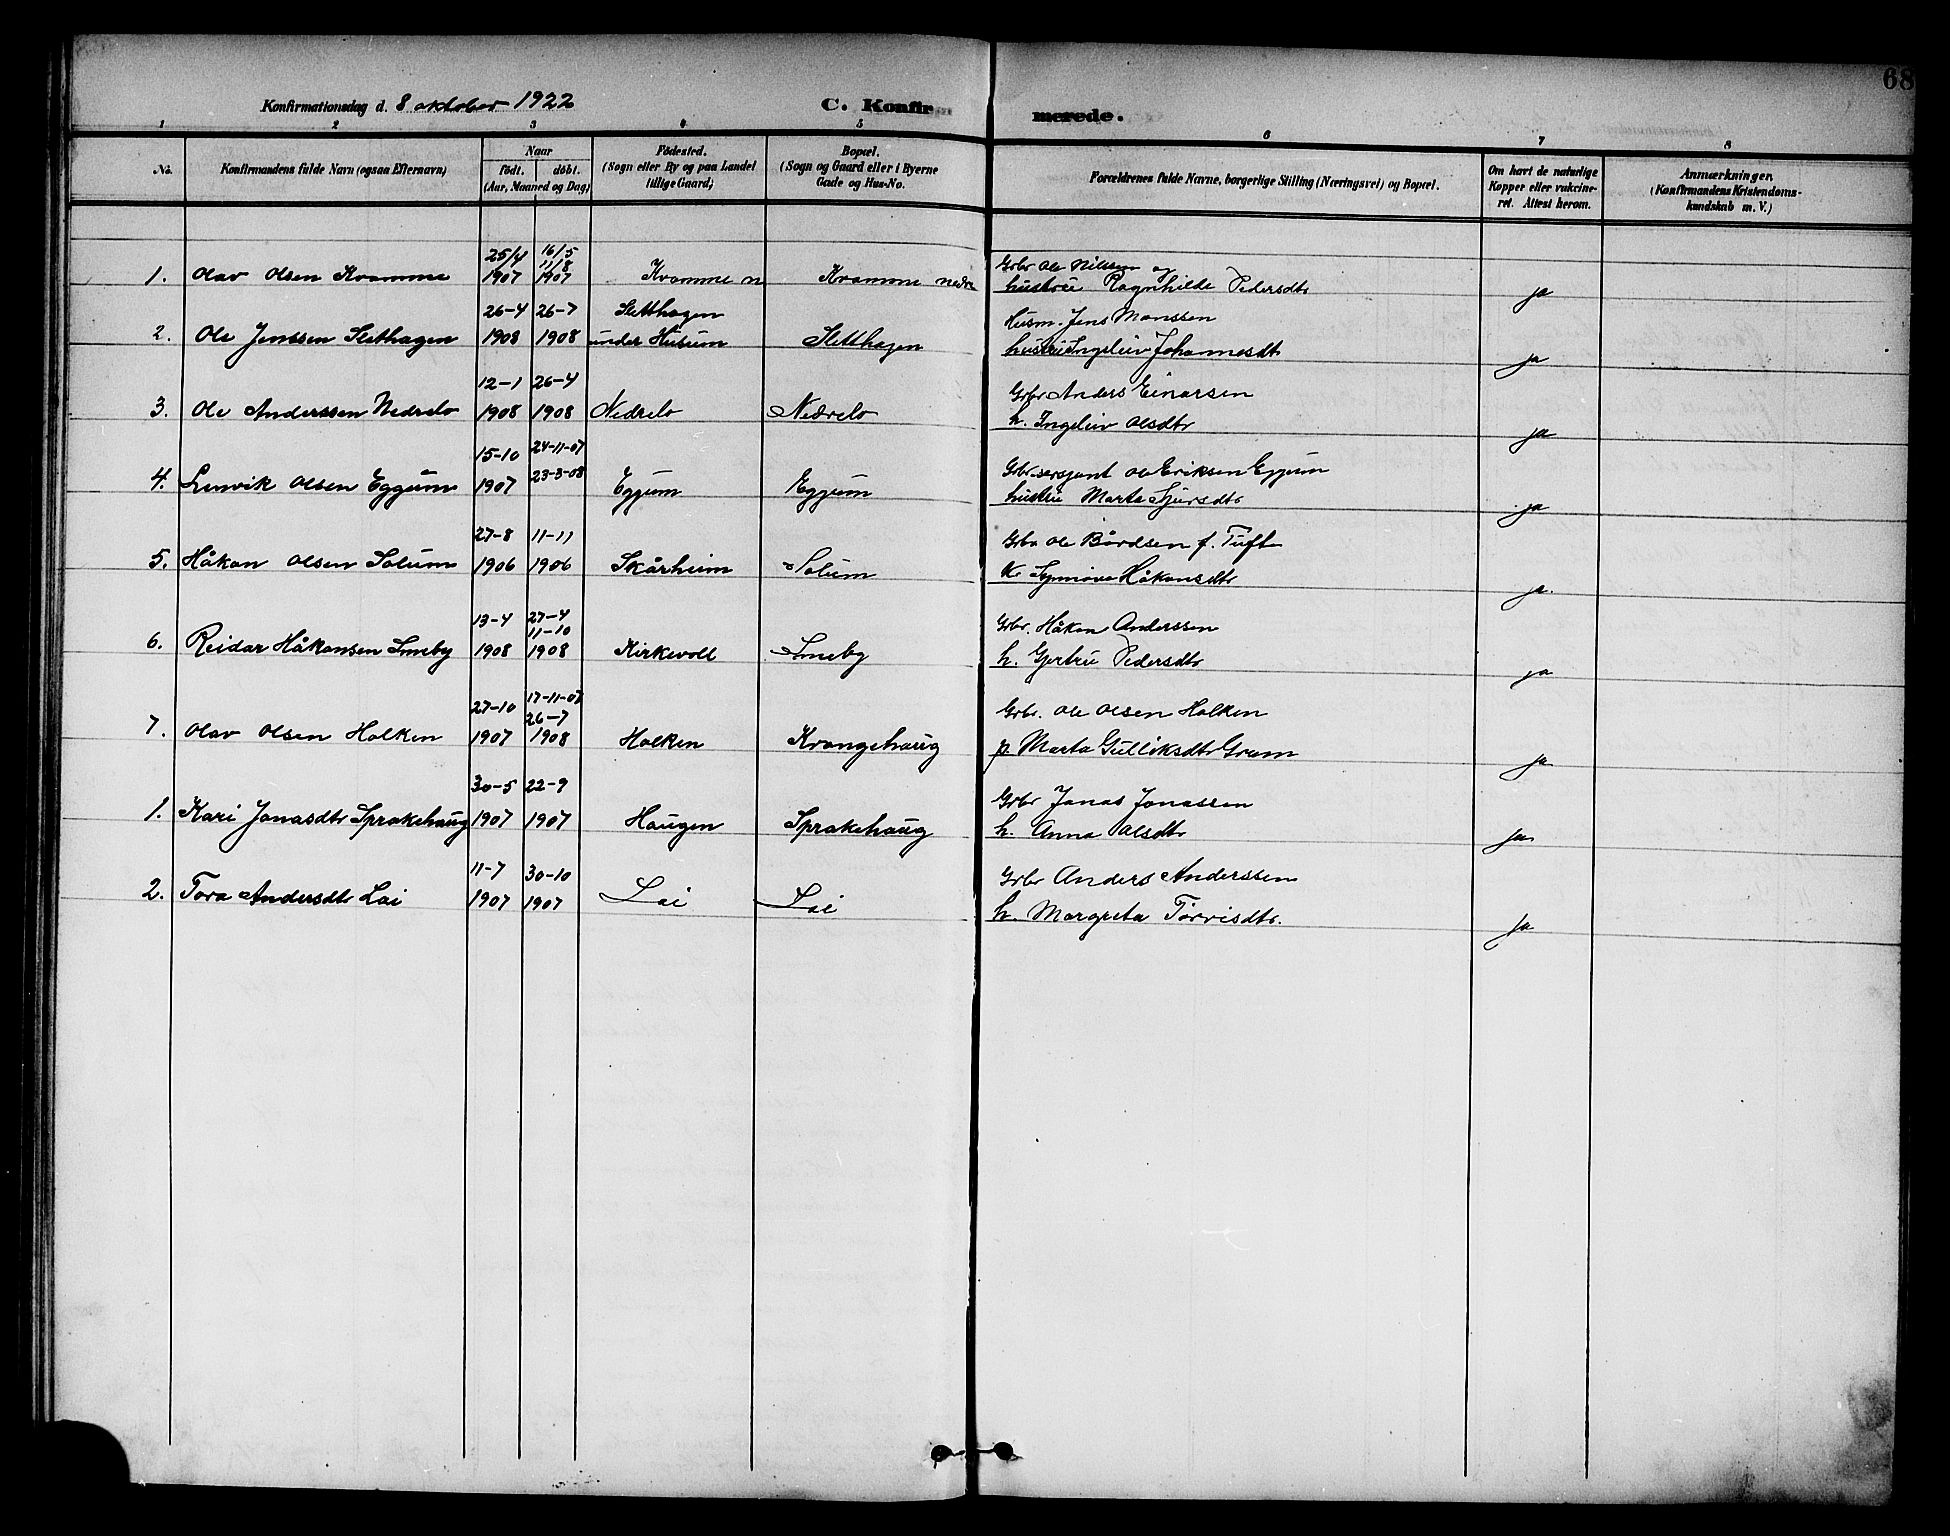 68
Konfirmationsdag d. 8 oktober 1922
C. Konfirmerede.
1 2 3 4 5 6 7 8
No.
Konfirmandens fulde Navn (ogsaa Efternavn)
Naar
født. døbt.
(Aar, Maaned og Dag)
Fødested.
(Sogn eller By og paa Landet
tillige Gaard)
Bopæl.
(Sogn og Gaard eller i Byerne
Gade og Hus-No.
Forældrenes fulde Navne, borgerlige Stilling (Næringsvei) og Bopæl.
Om havt de naturlige
Kopper eller vakcine-
ret. Attest herom.
Anmærkninger.
(Konfirmandens Kristendoms-
kundskab m. V.)
25/4 16/5
11/8
Grbr Ole Nilssen og
1. Olav Olsen Kvamme 1907 1907 Kvamme n Kvamme nedre hustru Ragnhilde Pedersdtr ja
26-4 26-7 Sletthagen Husm. Jens Monssen
2. Ole Jenssen Sletthagen 1908 1908 under Husum Sletthagen hustru Ingeleiv Johannesdt ja
12-1 26-4 Grbr Anders Einarsen
3. Ole Anderssen Nedrelo 1908 1908 Nedrelo Nedrelo h. Ingeleiv Olsdtr ja
15-10 24-11-07 Grbr. sersjant Ole Eriksen Eggum
4. Lenvik Olsen Eggum 1907 23-3-08 Eggum Eggum hustru Marta Sjursdtr ja
27-8 11-11 Grbr Ole Bårdsen f. Tuft
5. Håkon Olsen Solum 1906 1906 Skårheim Solum Synnøva Håkonsdtr ja.
13-4 27-4
11-10 Grbr. Håkon Anderssen
6. Reidar Håkonsen Smeby 1908 1908 Kirkevoll Smeby h. Gjertru Pedersdtr ja
27-10 17-11-07
26-7 Grbr. Ole Olsen Holken
7. Olav Olsen Holken 1907 1908 Holken Krongehaug p. Marta Gulliksdtr Gram ja
30-5 22-9 Grbr Jonas Jonassen
1. Kari Jonasdtr Sprakehaug 1907 1907 Haugen Sprakehaug h. Anna Olsdtr ja
11-7 30-10 Grbr Anders Anderssen
2. Tora Andersdtr Loi 1907 1907 Loi Loi h. Margreta Torvisdtr. ja